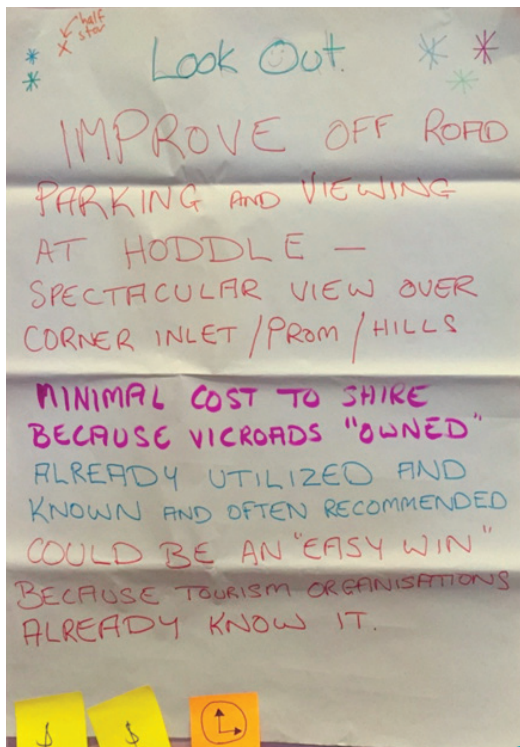 half
star
Look Out.
IMPROVE OFF ROAD
PARKING AND VIEWING
AT HODDLE —
SPECTACULAR VIEW OVER
CORNER INLET / PROM / HILLS
MINIMAL COST TO SHIRE
BECAUSE VICROADS "OWNED"
ALREADY UTILIZED AND
KNOWN AND OFTEN RECOMMENDED
COULD BE AN "EASY WIN"
BECAUSE TOURISM ORGANISATIONS
ALREADY KNOW IT.
$ $